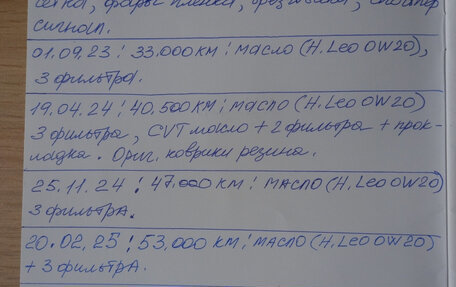 сетка, фары пленка, брызговики, стопер
сигнал.
01.09.23 ¦ 33.000 км ¦ масло (H.Leo 0W20),
3 фильтра.
19.04.24 ¦ 40.500 км ¦ масло (H.Leo 0W20)
3 фильтра, CVT масло + 2 фильтра + прок-
ладка. Ориг. коврики резина.
25.11.24 ¦ 47.000 км ¦ масло (H.Leo 0W20)
3 фильтра.
20.02.25 ¦ 53.000 км ¦ масло (H.Leo 0W20)
+ 3 фильтра.